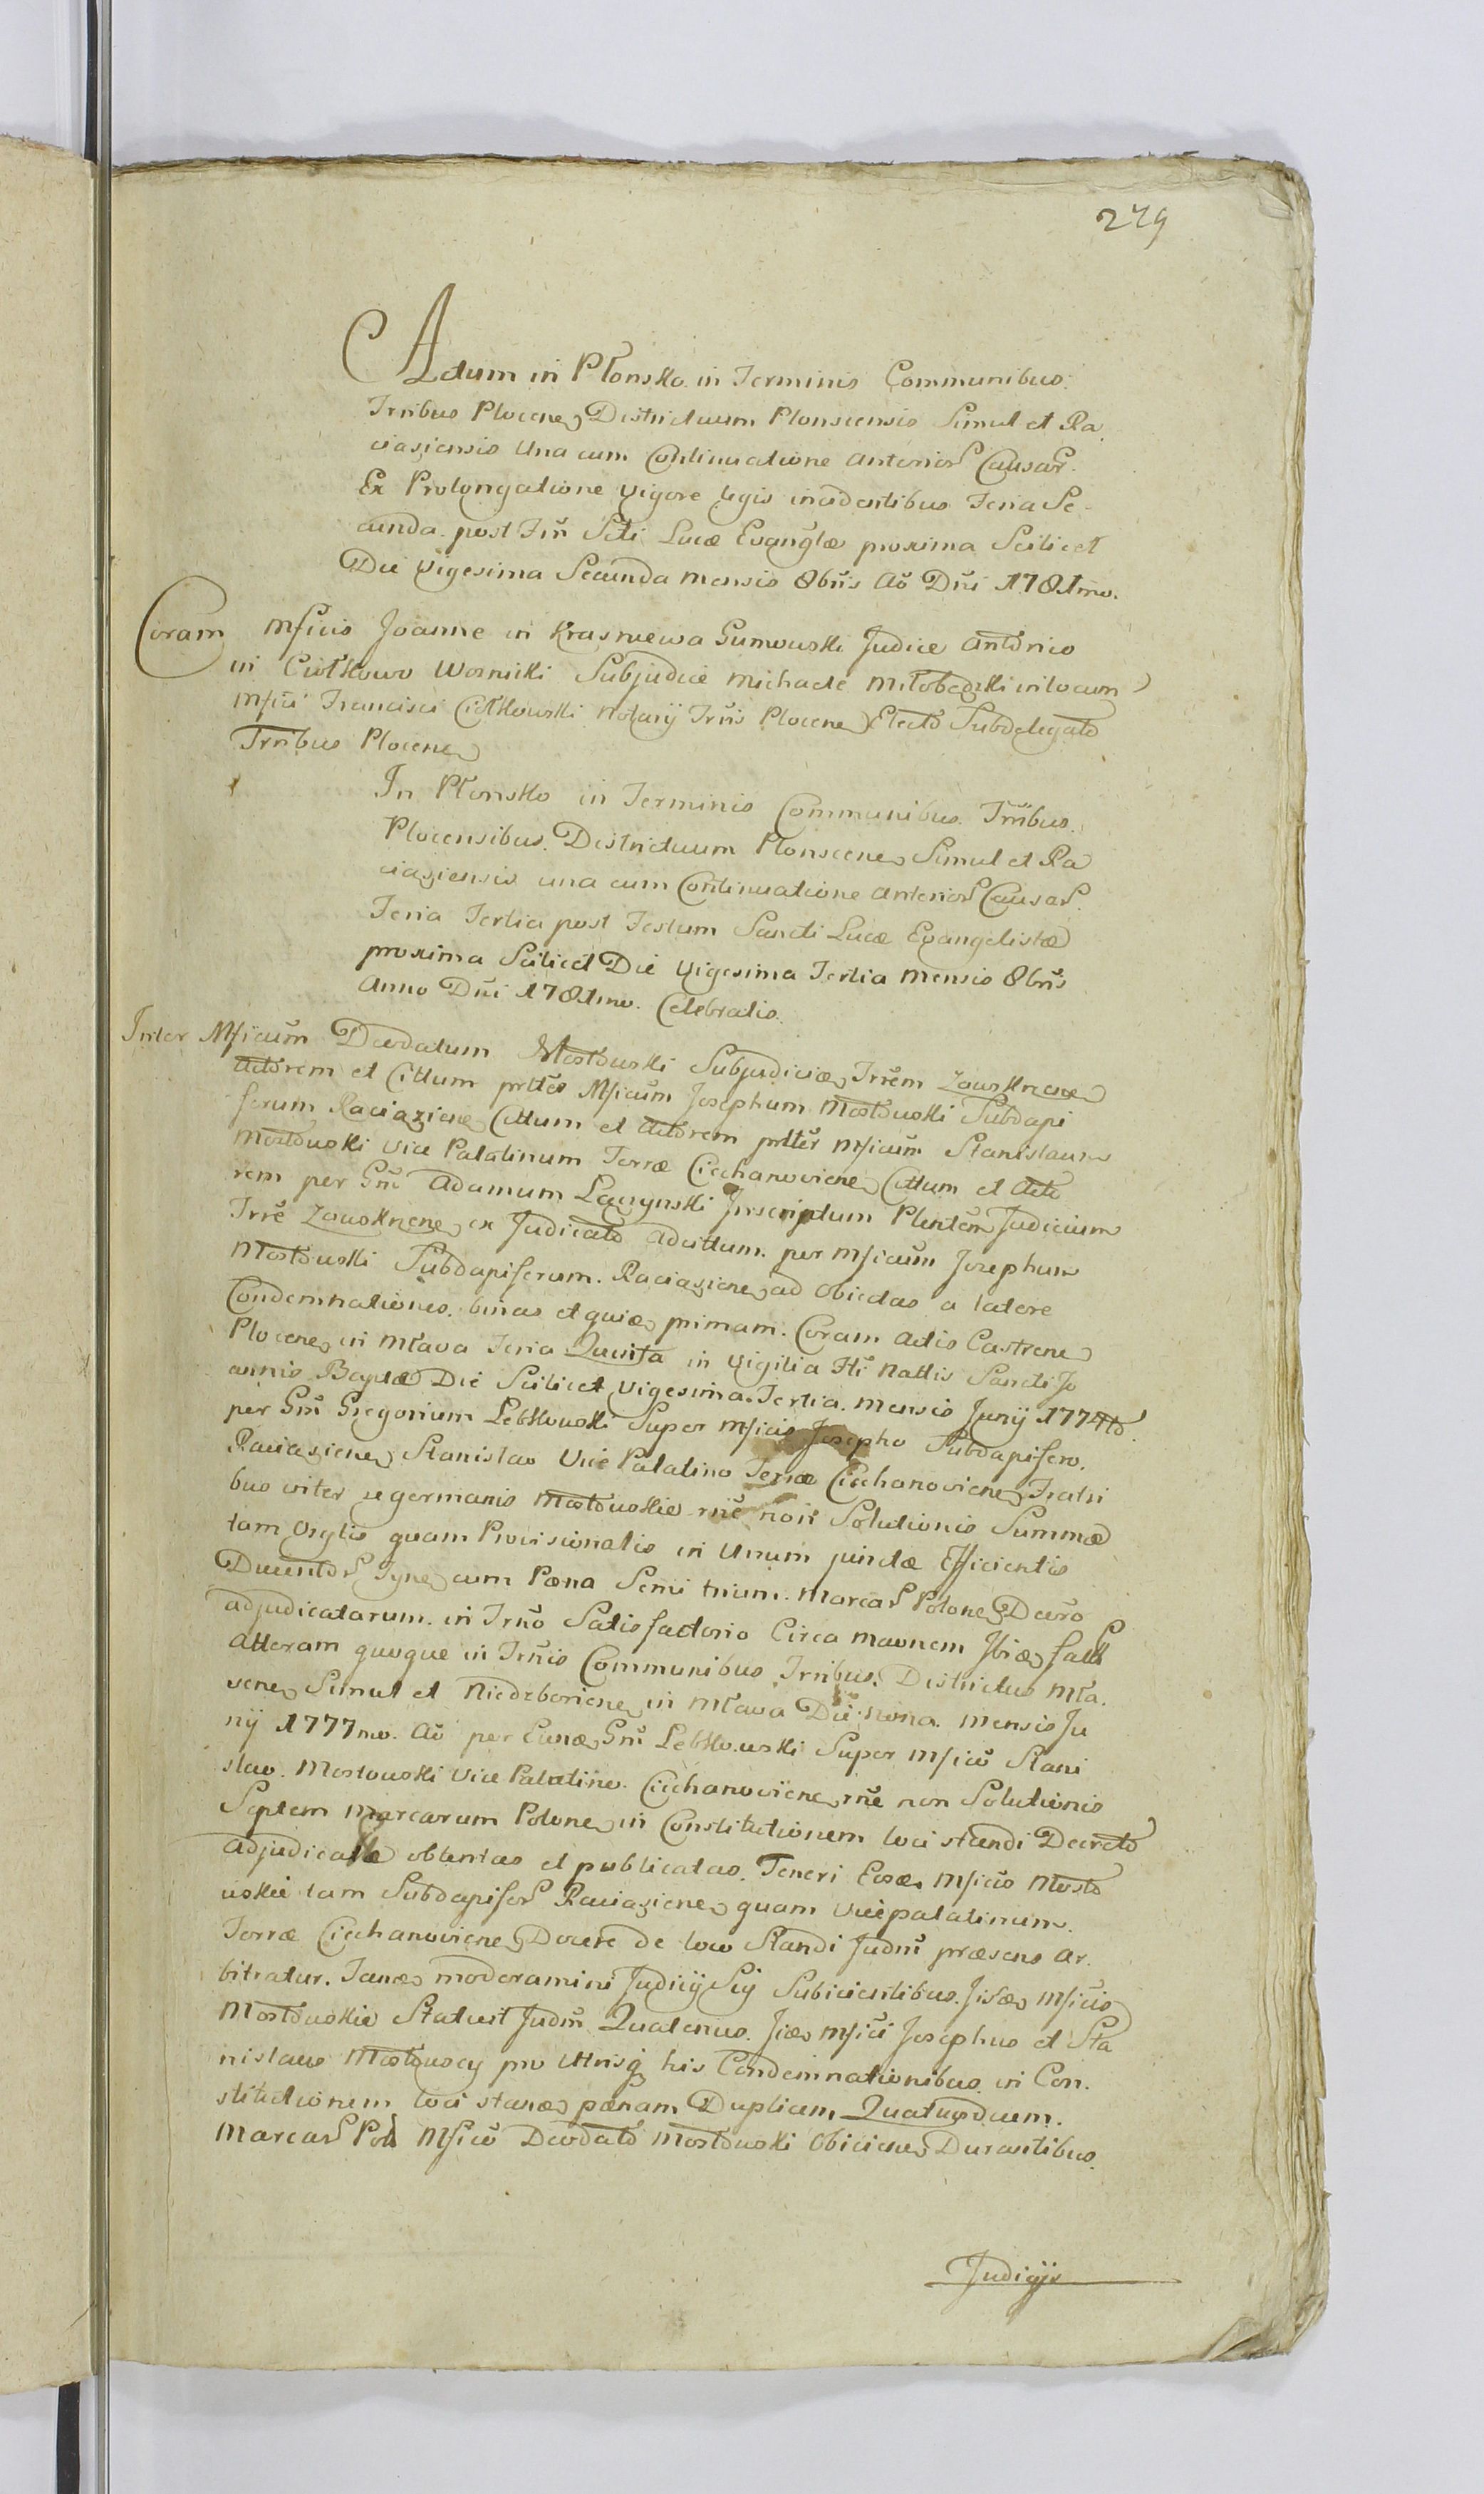 279
Actum in Płonsko in Terminis Communibus.
Trribus Plocene Districtuum Plonscensis Simul et Ra
ciazensis Una cum Continuatione anterior Causar.
Ex Prolongatione Vigore legis incidentibus Feria Se-
cunda post Fm Scti Lucæ Evanglæ proxima Scilicet
Die Vigesima Secunda Mensis 8bris Ao Dni 1781mo.
Coram Mficis Joanne in Krasniewa Gumowski Judice Antonio
in Ciołkowo Woznicki Subjudice Michaele Miłobędzki in locum
Mfici Francisci Ciołkowski Notarij Trris Plocene Electo Subdelegato
Trribus Plocene
In Płonsko in Terminis Communibus Trribus
Plocensibus Districtuum Plonscene Simul et Ra
ciaziensis una cum Continuatione anterior Causar.
Feria Tertia post Festum Sancti Lucæ Evangelistæ
proxima Scilicet Die Vigesima Tertia Mensis 8bris
Anno Dni 1781mo. Celebratis.
Inter Mficum Deodatum Mostowski Subjudicem Trrem Zawskrzene
Actorem et Cittum prtter Mficum Josephum Mostowski Subdapi
ferum Raciaziene Cittum et Actorem prtter Mficum Stanislaum
Mostowski Vice Palatinum Terræ Ciechanoviene Cittum et Acto
rem per Gm Adamum Łaczynski Inscriptum Plentem Judicium
Trre Zawskrzene ex Judicato adcittum. per Mficum Josephum
Mostowski Subdapiferum. Raciaziene ad Obiectas a latere
Condemnationes. binas et quidem primam. Coram Actis Castrene
Plocene in Mława Feria Quinta in Vigilia Fti Nattis Sancti Jo
annis Baptæ Die Scilicet Vigesima Tertia. Mensis Junij 1774to.
per Gm Gregorium Lebkowski Super Mficis Josepho Subdapifero.
Raciaziene Stanislao Vice Palatino Terræ Ciechanoviene Fratri
bus inter se germanis Mostowskie rne non Solutionis Summæ
tam Orglis quam Provisionalis in Unum junctæ Efficientis
Ducentor Tyne cum Pœna Semi trium. Marcar Polone Decro
adjudicatarum. in Trno Satisfactorio Circa
Alteram quoque in Trnis Communibus Trribus. Districtus Mła.
vene Simul et Niedzboriene in Mława Die Nona. Mensis Ju
nij 1777mo. Ao per Eund Gm Lebkowski Super Mfico Stani
slao. Mostowski Vice Palatino. Ciechanoviene rne non Solutionis
Septem Marcarum Polone in Constitutionem loci standi Decreto
adjudicatæ obtentas et publicatas. Teneri Eosdem Mficos Mosto
wskie tam Subdapifer Raciaziene quam Vicepalatinum
Terræ Ciechanoviene Docere de loco Standi Judm præsens ar
bitratur. Tandem moderamini Judicij Sij Subicientibus. Mficis
Mostowskie Statuit Judm Quatenus. Mfici Josephus et Sta
nislaus Mostowscy pro Utrisq his Condemnationibus in Con
stitutionem loci standi pœnam Duplicem Quatuordecim.
Marcar Pol Mfico Deodato Mostowski Obiicien Durantibus.
Judicijs